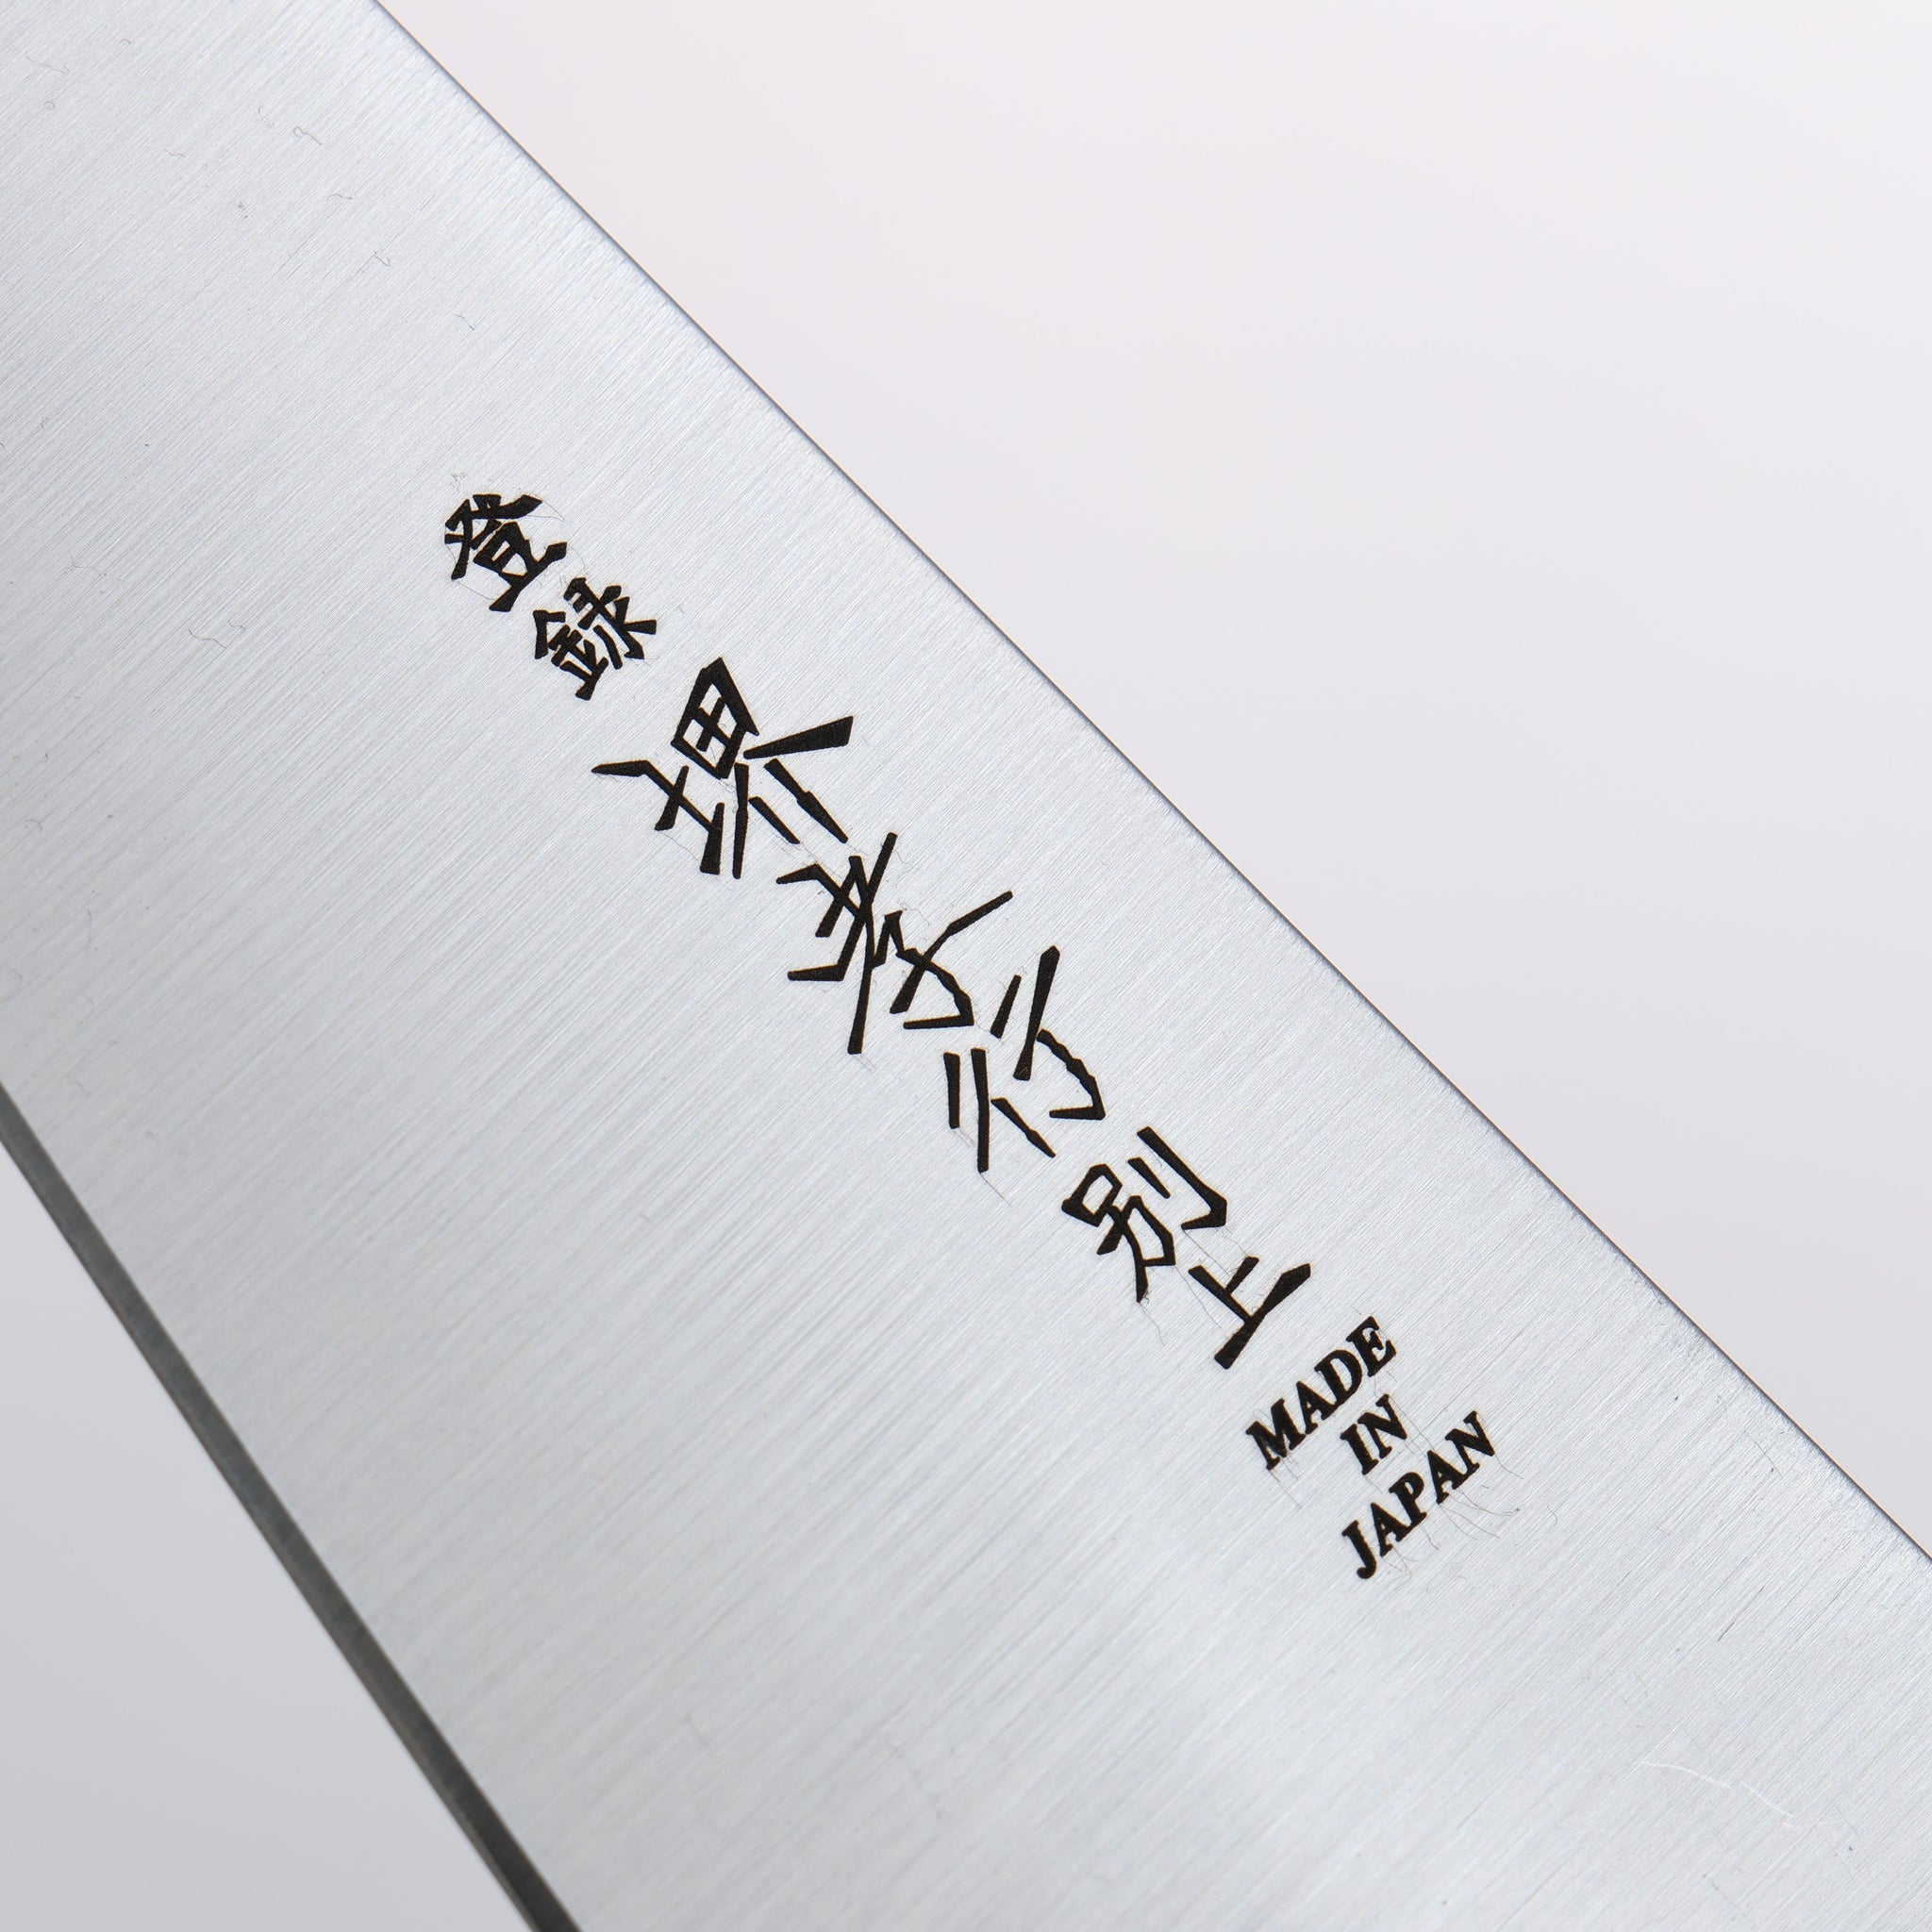 登録堺孝行別上
MADE
IN
JAPAN